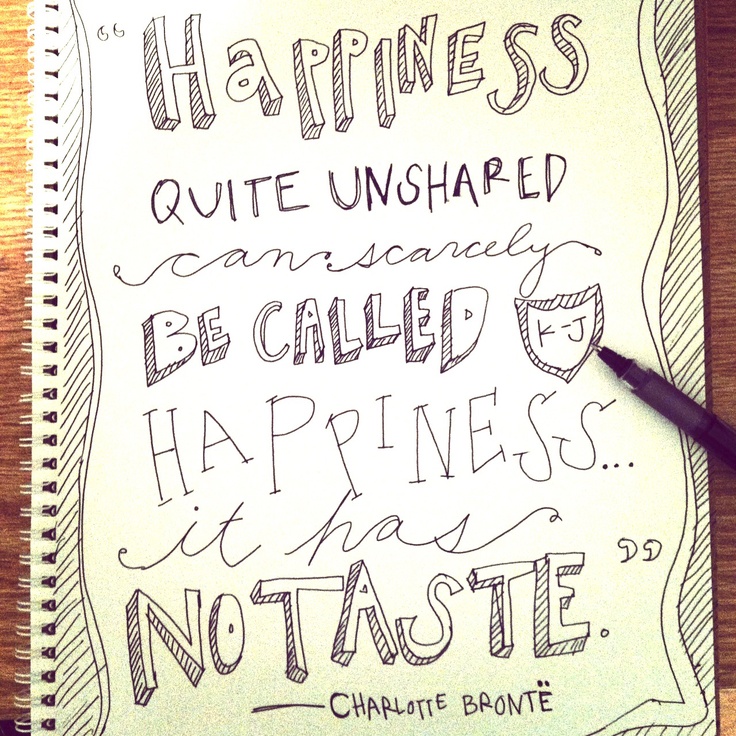 “HaPPiNESS
QUITE UNSHARED
can scarcely
BE CALLED
K-J
HAPPINESS...
it has
NO TASTE.”
— CHARLOTTE BRONTË